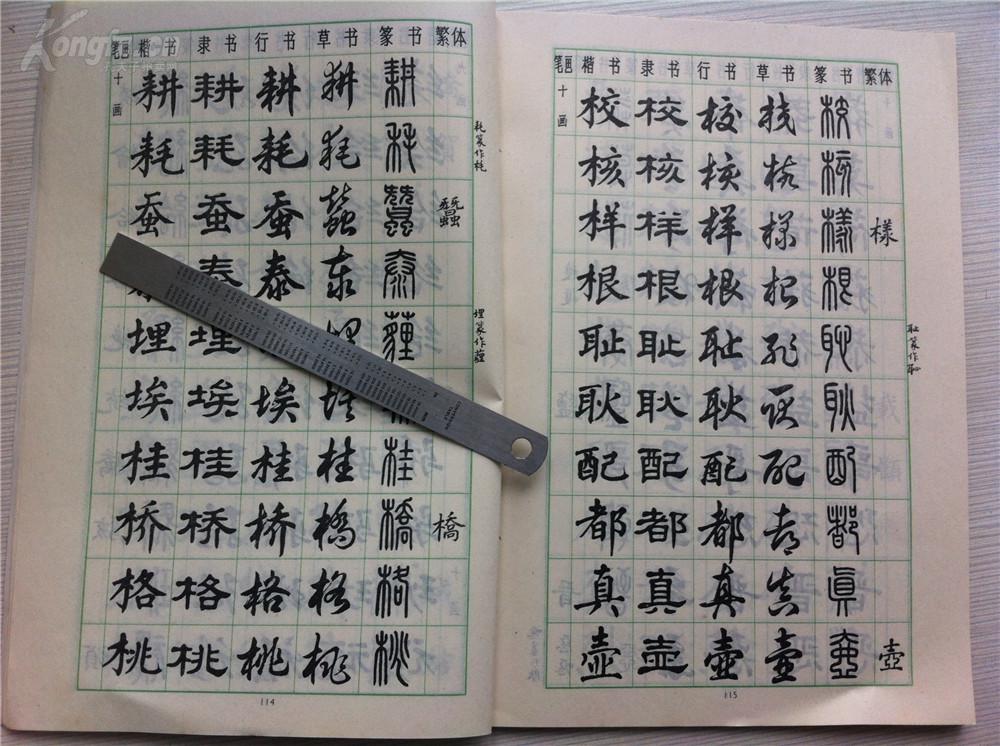 Kongfz.com
笔画 楷书 隶书 行书 草书 篆书 繁体
十画
耕 耕 耕 耕 耕
耗 耗 耗 耗 耗
耗篆作秏
蚕 蚕 蚕 蚕 蠶 蠶
泰 泰 泰 泰
埋 埋 埋 薶
埋篆作薶
埃 埃 埃
桂 桂 桂 桂 桂
桥 桥 桥 橋 橋 橋
格 格 格 格 格
桃 桃 桃 桃 桃
114
笔画 楷书 隶书 行书 草书 篆书 繁体
十画
校 校 校 校 校
核 核 核 核 核
样 样 样 樣 樣 樣
根 根 根 根 根
耻 耻 耻 耻 恥
耻篆作恥
耿 耿 耿 耿 耿
配 配 配 配 配
都 都 都 都 都
真 真 真 真 眞
壶 壶 壶 壶 壺 壺
115